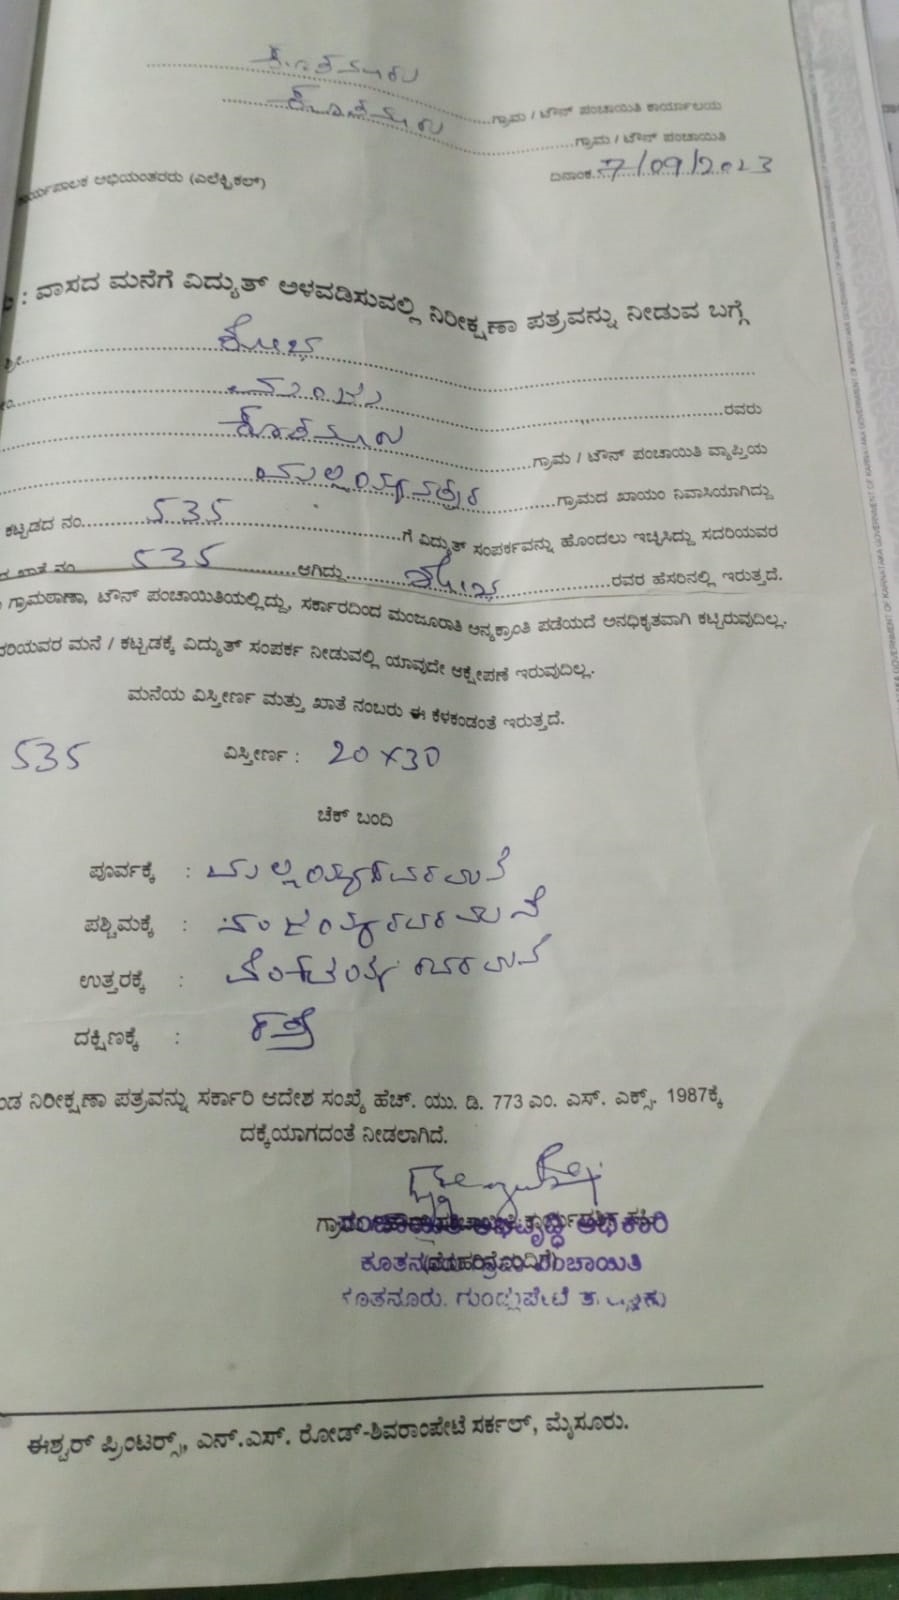 ಕೂತನೂರು
ಗ್ರಾಮ / ಟೌನ್ ಪಂಚಾಯಿತಿ ಕಾರ್ಯಾಲಯ
ಕೂತನೂರು
ಗ್ರಾಮ / ಟೌನ್ ಪಂಚಾಯಿತಿ
ದಿನಾಂಕ 7/09/2023
ಕಾರ್ಯಪಾಲಕ ಅಭಿಯಂತರರು (ಎಲೆಕ್ಟ್ರಿಕಲ್)
: ವಾಸದ ಮನೆಗೆ ವಿದ್ಯುತ್ ಅಳವಡಿಸುವಲ್ಲಿ ನಿರೀಕ್ಷಣಾ ಪತ್ರವನ್ನು ನೀಡುವ ಬಗ್ಗೆ
ಶ್ರೀ ಶೋಭ
ಮಂಜು ರವರು
ಕೂತನೂರು ಗ್ರಾಮ / ಟೌನ್ ಪಂಚಾಯಿತಿ ವ್ಯಾಪ್ತಿಯ
ಗ್ರಾಮದ ಖಾಯಂ ನಿವಾಸಿಯಾಗಿದ್ದು
ಕಟ್ಟಡದ ನಂ. 535 ಗೆ ವಿದ್ಯುತ್ ಸಂಪರ್ಕವನ್ನು ಹೊಂದಲು ಇಚ್ಛಿಸಿದ್ದು ಸದರಿಯವರ
ಖಾತೆ ನಂ 535 ಆಗಿದ್ದು ಶೋಭ ರವರ ಹೆಸರಿನಲ್ಲಿ ಇರುತ್ತದೆ.
ಗ್ರಾಮಠಾಣಾ, ಟೌನ್ ಪಂಚಾಯಿತಿಯಲ್ಲಿದ್ದು, ಸರ್ಕಾರದಿಂದ ಮಂಜೂರಾತಿ ಅನ್ಯಕ್ರಾಂತಿ ಪಡೆಯದೆ ಅನಧಿಕೃತವಾಗಿ ಕಟ್ಟಿರುವುದಿಲ್ಲ.
ದರಿಯವರ ಮನೆ / ಕಟ್ಟಡಕ್ಕೆ ವಿದ್ಯುತ್ ಸಂಪರ್ಕ ನೀಡುವಲ್ಲಿ ಯಾವುದೇ ಆಕ್ಷೇಪಣೆ ಇರುವುದಿಲ್ಲ.
ಮನೆಯ ವಿಸ್ತೀರ್ಣ ಮತ್ತು ಖಾತೆ ನಂಬರು ಈ ಕೆಳಕಂಡಂತೆ ಇರುತ್ತದೆ.
535 ವಿಸ್ತೀರ್ಣ : 20×30
ಚೆಕ್ ಬಂದಿ
ಪೂರ್ವಕ್ಕೆ : ಮಲ್ಲಯ್ಯರವರ ಮನೆ
ಪಶ್ಚಿಮಕ್ಕೆ : ನಂಜಯ್ಯರವರ ಮನೆ
ಉತ್ತರಕ್ಕೆ : ವೆಂಕಟಯ್ಯ ರವರ ಮನೆ
ದಕ್ಷಿಣಕ್ಕೆ : ರಸ್ತೆ
ಂಡ ನಿರೀಕ್ಷಣಾ ಪತ್ರವನ್ನು ಸರ್ಕಾರಿ ಆದೇಶ ಸಂಖ್ಯೆ ಹೆಚ್. ಯು. ಡಿ. 773 ಎಂ. ಎಸ್. ಎಕ್ಸ್. 1987ಕ್ಕೆ
ದಕ್ಕೆಯಾಗದಂತೆ ನೀಡಲಾಗಿದೆ.
ಅಭಿವೃದ್ಧಿ ಅಧಿಕಾರಿ
ಪಂಚಾಯಿತಿ
ಕೂತನೂರು. ಗುಂಡ್ಲುಪೇಟೆ
ಈಶ್ವರ್ ಪ್ರಿಂಟರ್ಸ್, ಎನ್.ಎಸ್. ರೋಡ್-ಶಿವರಾಂಪೇಟೆ ಸರ್ಕಲ್, ಮೈಸೂರು.